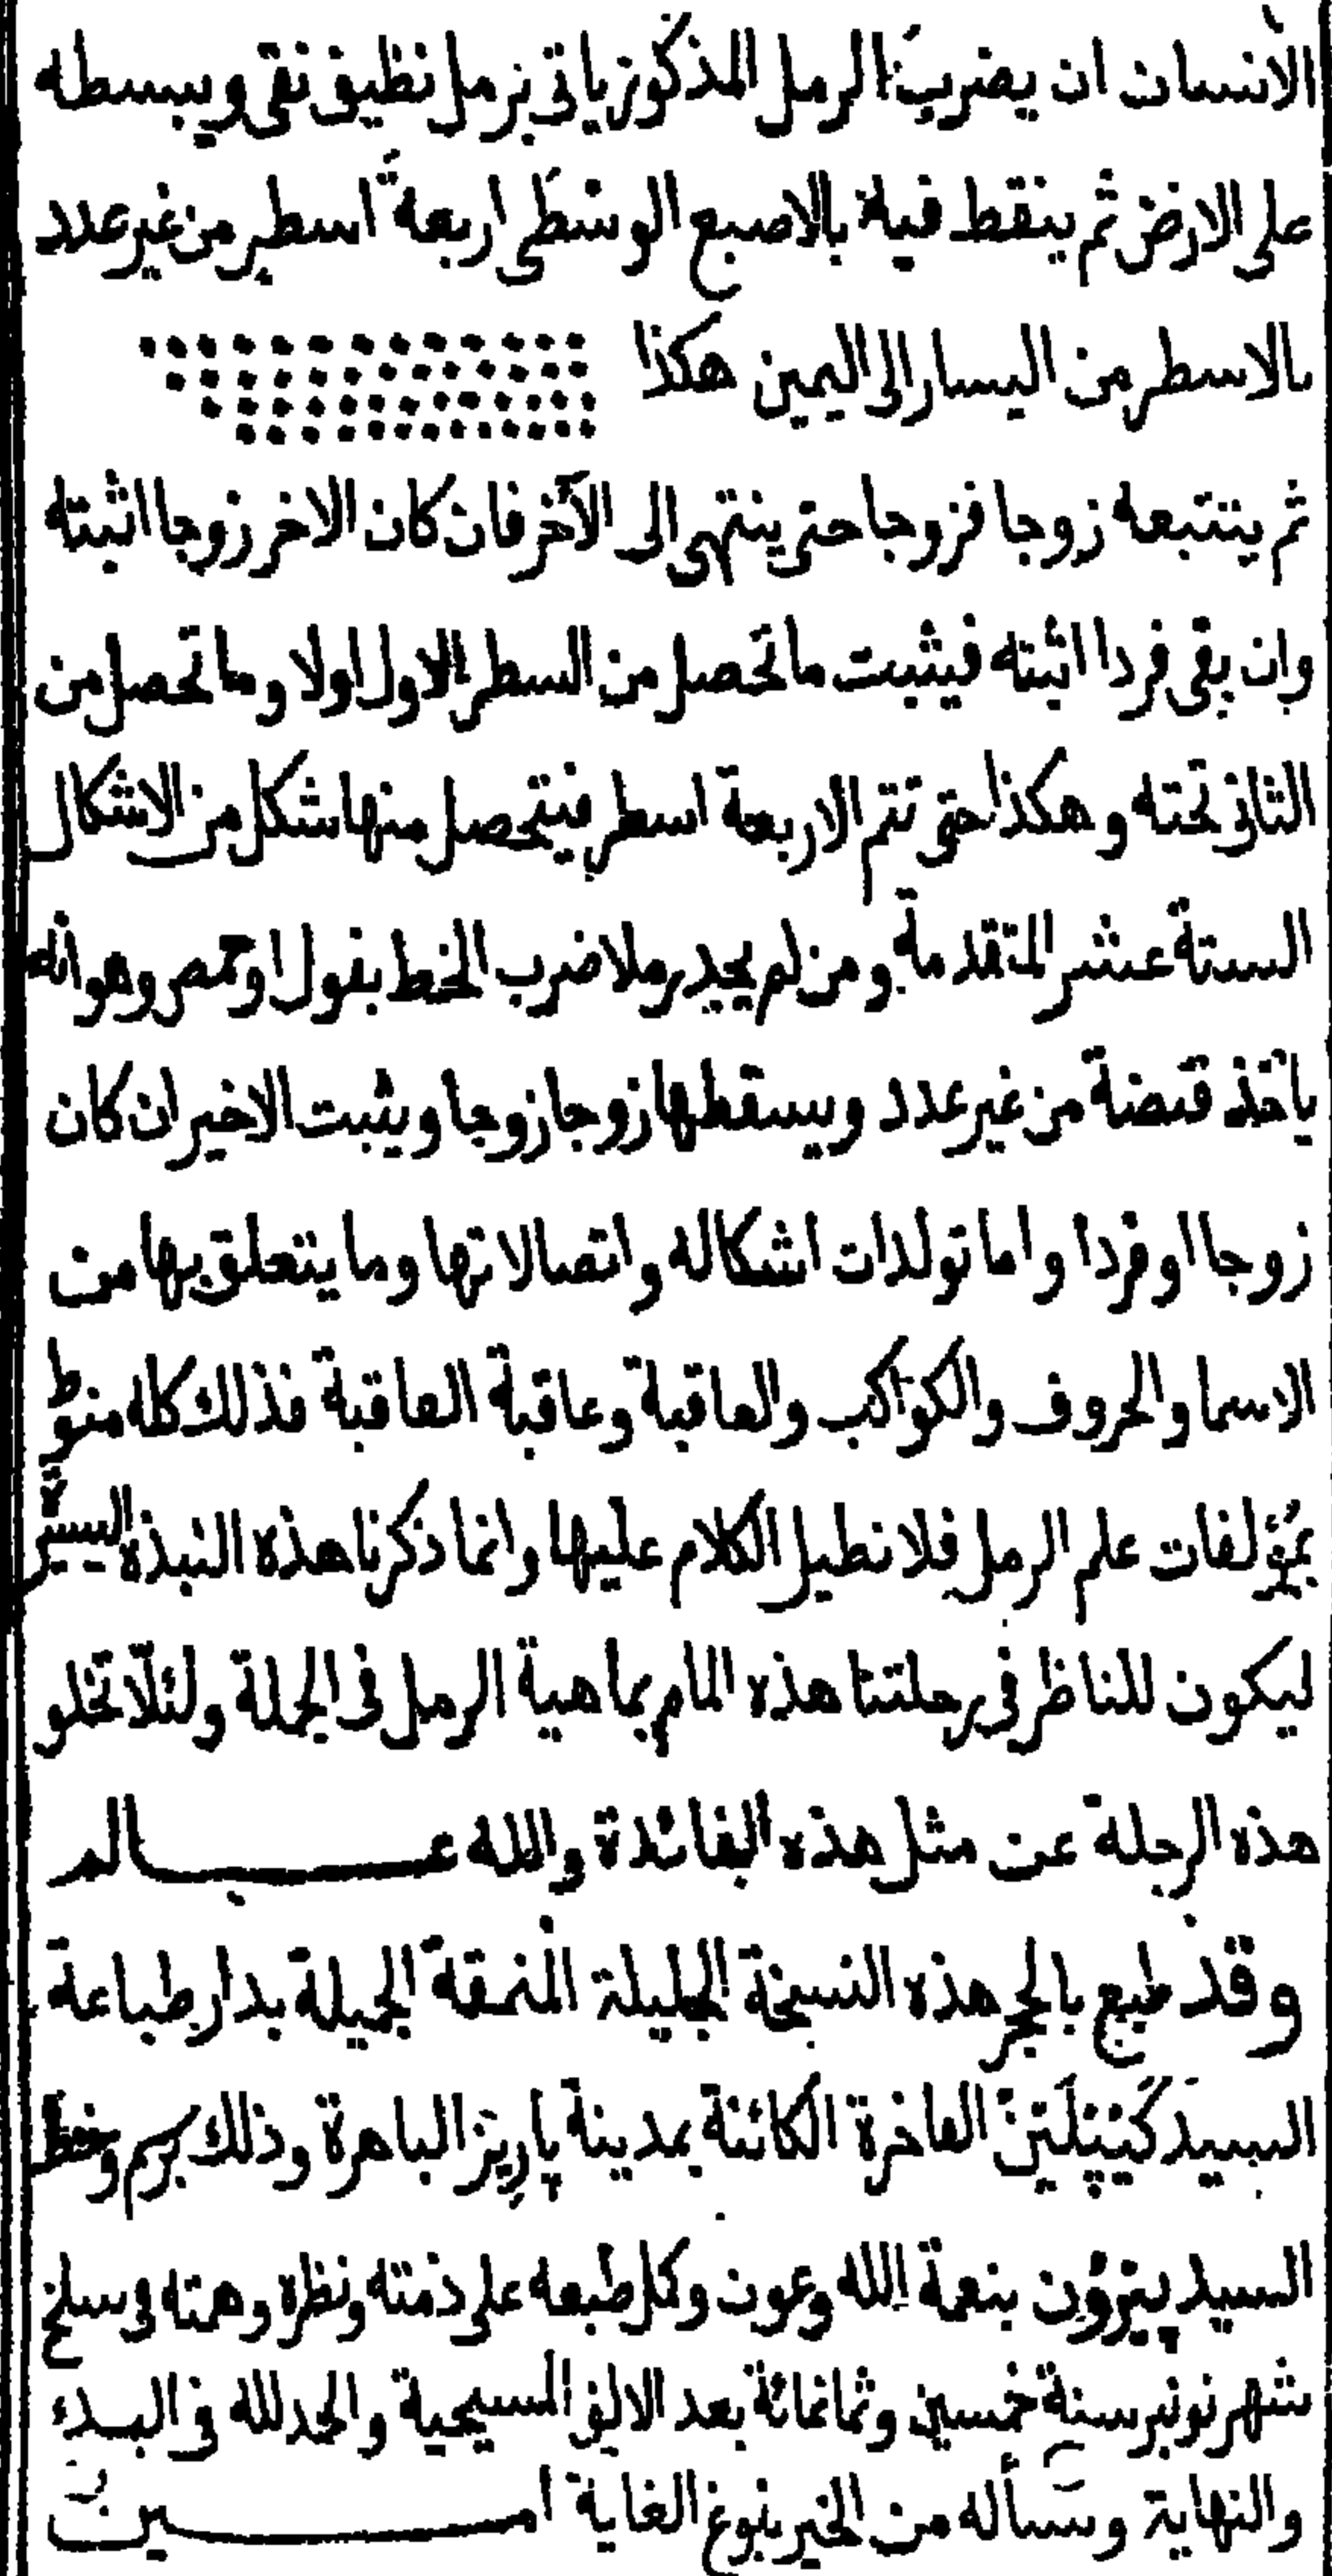 الانسان ان يضرب الرمل المذكور ياتى برمل نظيف نقى ويبسطه
على الارض ثم ينقط فيه بالاصبع الوسطى اربعة اسطر من غير عدد
بالاسطر من اليسار الى اليمين هكذا
ثم يتتبعه زوجا فزوجا حتى ينتهى الى الآخر فان كان الاخر زوجا اثبته
وان بقى فردا اثبته فيثبت ما تحصل من السطر الاول اولا وما تحصل من
الثانى تحته وهكذا حتى تتم الاربعة اسطر فيتحصل منها شكل من الاشكال
الستة عشر المتقدمة ومن لم يجد رملا ضرب الخط بفول او حمص وهو انه
ياخذ قبضة من غير عدد ويسقطها زوجا زوجا ويثبت الاخير ان كان
زوجا او فردا واما تولدات اشكاله واتصالاتها وما يتعلق بها من
الاسما والحروف والكواكب والعاقبة وعاقبة العاقبة فذلك كله منوط
بمؤلفات علم الرمل فلا نطيل الكلام عليها وانما ذكرنا هذه النبذة اليسيرة
ليكون للناظر فى رحلتنا هذه المام بماهية الرمل فى الجملة ولئلا تخلو
هذه الرحلة عن مثل هذه الفائدة والله عالم
وقد طبع بالحجر هذه النسخة الجليلة المنمقة الجميلة بدار طباعة
السيد كَيْپَلَيْنْ الفاخرة الكائنة بمدينة پاريز الباهرة وذلك برسم وخط
السيد پيرّون بنعمة الله وعون وكل طبعه على ذمته ونظره وهمته فى سلخ
شهر نونبر سنة خمسين وثمانمائة بعد الالف المسيحية والحمد لله فى البدء
والنهاية ونسأله من الخير بلوغ الغاية امين